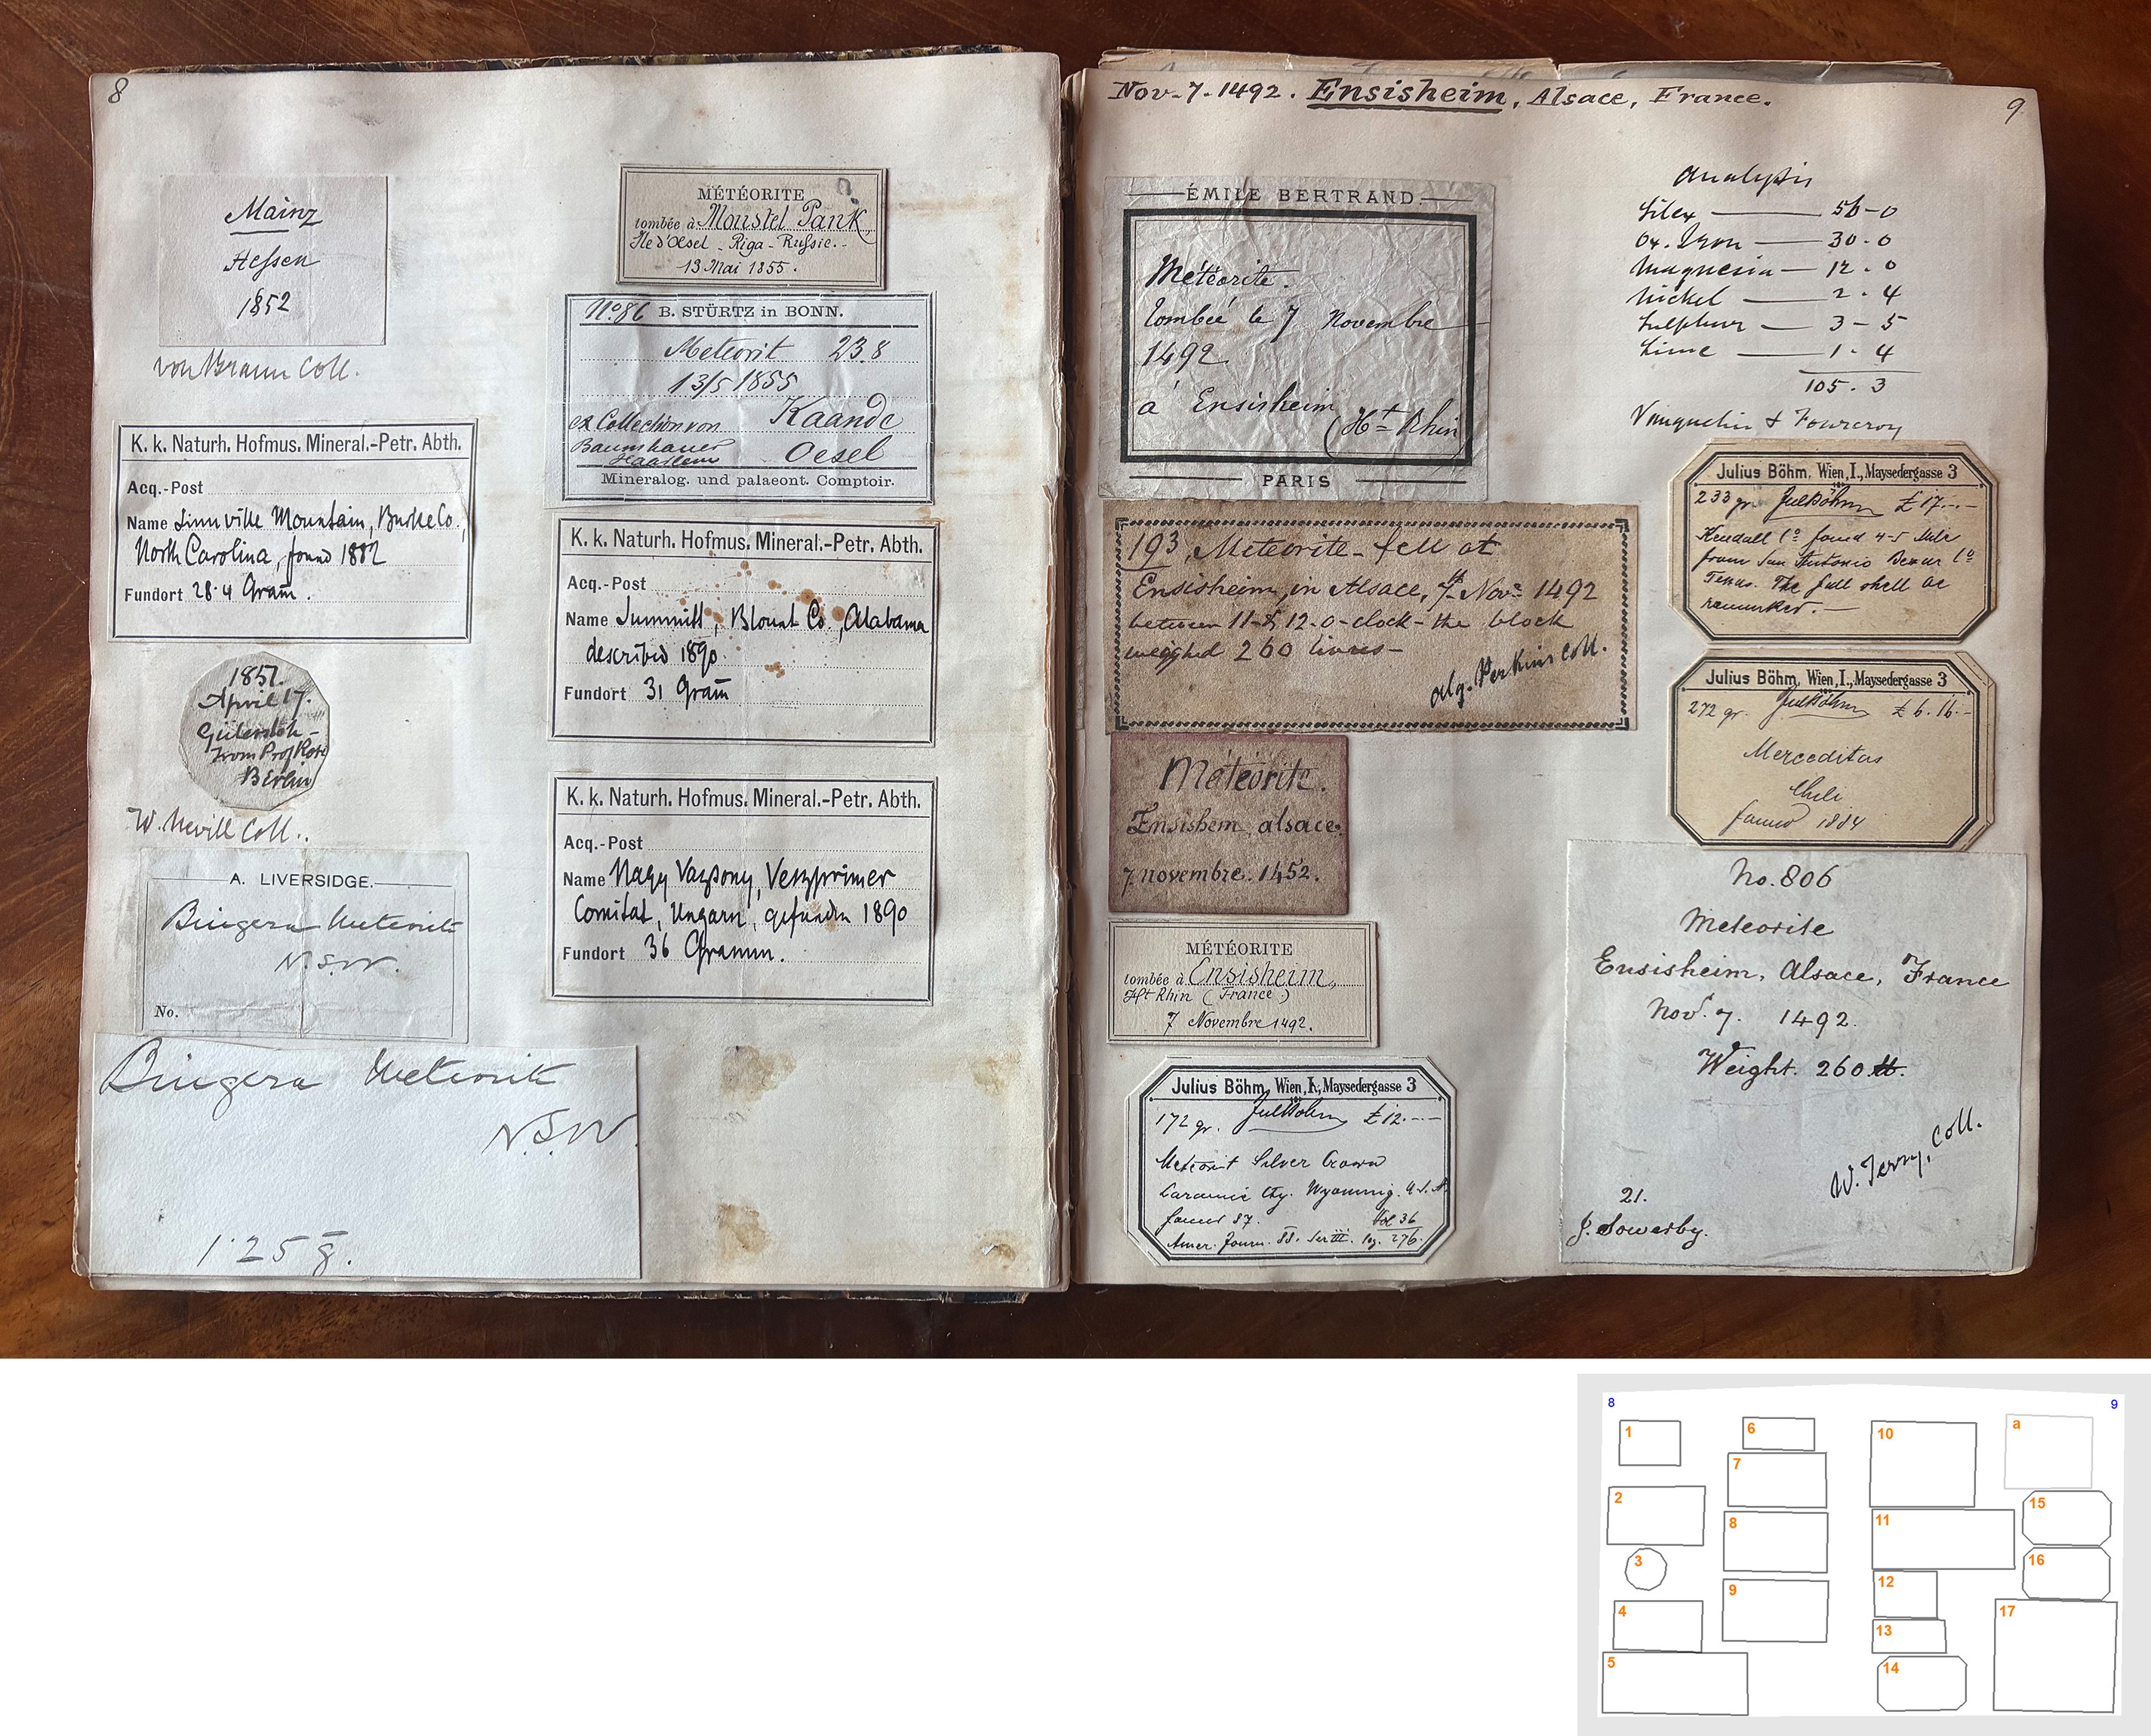 8
Mainz
Hessen
1852
von Braun Coll.
K. k. Naturh. Hofmus. Mineral.-Petr. Abth.
Acq.-Post
Name Linnville Mountain, Burke Co.,
North Carolina, found 1882
Fundort 28·4 Gram.
1851.
April 17.
Gütersloh-
From Prof Rose
Berlin
W. Nevill Coll.
A. LIVERSIDGE.
Bingera Meteorite
N.S.W.
No.
Bingera Meteorite
N.S.W.
1·25 g.
MÉTÉORITE
tombée à Moustel Pank,
Ile d'Oesel - Riga - Russie.-
13 Mai 1855.
No. 86 B. STÜRTZ in BONN.
Meteorit 23.8
13/5 1855
ex Collection von Kaande
Baumhauer
Haarlem Oesel
Mineralog. und palaeont. Comptoir.
K. k. Naturh. Hofmus. Mineral.-Petr. Abth.
Acq.-Post
Name Summitt, Blount Co., Alabama
described 1890.
Fundort 31 Gram
K. k. Naturh. Hofmus. Mineral.-Petr. Abth.
Acq.-Post
Name Nagy Vazsony, Veszprimer
Comitat, Ungarn, gefunden 1890
Fundort 36 Gramm.
Nov. 7. 1492. Ensisheim, Alsace, France.
9
ÉMILE BERTRAND.
Météorite.
tombée le 7 Novembre
1492
à Ensisheim
(Ht Rhin)
PARIS
193, Meteorite - fell at
Ensisheim, in Alsace, 7th Novr 1492
between 11 & 12-o-clock - the block
weighed 260 livres-
Alg. Perkins Coll.
Météorite.
Ensishem, alsace.
7. novembre. 1452.
MÉTÉORITE
tombée à Ensisheim,
Ht Rhin (France)
7 Novembre 1492.
Julius Böhm, Wien, I., Maysedergasse 3
172 gr. Jul Böhm £ 12.--
Meteorit Silver Crown
Laramie Cty. Wyoming. U.S.A.
found 87. Vol 36
Amer. Journ. 88. Ser III. pg. 276.
Analysis
Silex — 56-0
Ox. Iron — 30.0
Magnesia — 12.0
Nickel — 2.4
Sulphur — 3-5
Lime — 1.4
105.3
Vauquelin & Fourcroy
Julius Böhm, Wien, I., Maysedergasse 3
233 gr. Jul Böhm £ 17.--
Kendall Co found 4-5 Mile
from San Antonio Bexar Co
Texas. The full shell be
remarked.-
Julius Böhm, Wien, I., Maysedergasse 3
272 gr. Jul Böhm £ 6.16.-
Merceditas
Chili
found 1884
No. 806
Meteorite
Ensisheim, Alsace, France
Nov. 7. 1492.
Weight. 260 lb.
W. Terry, Coll.
21.
J. Sowerby.
8
9
1
2
3
4
5
6
7
8
9
10
11
12
13
14
a
15
16
17